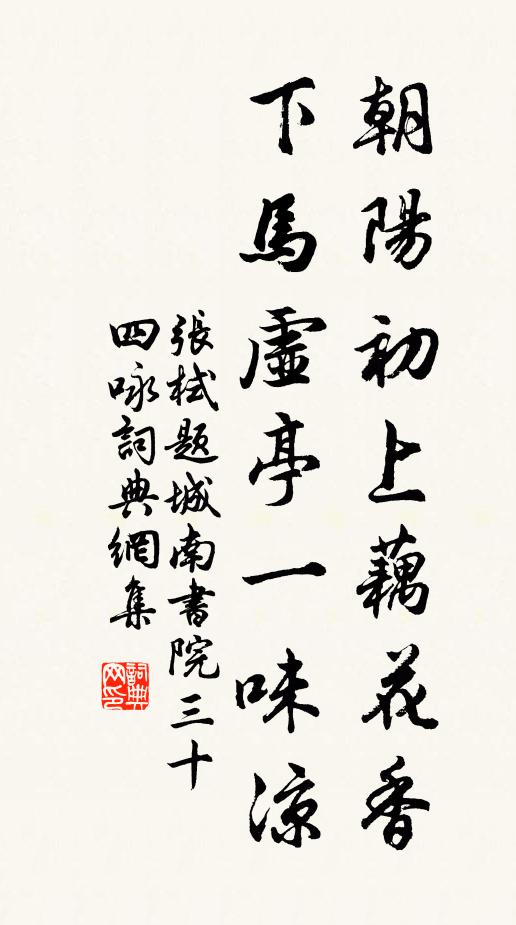 朝陽初上藕花香
下馬虛亭一味涼
張栻題城南書院三十
四咏詞典網集
詞典
网印